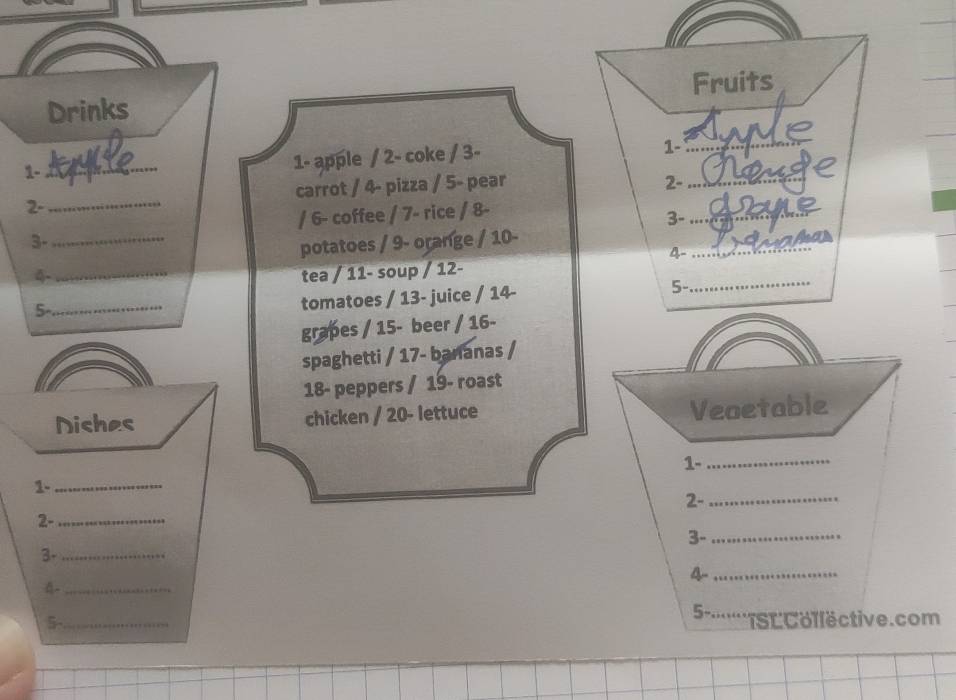 Drinks
1- Apple
2-
3-
4-
5-
1- apple / 2- coke / 3-
carrot / 4- pizza / 5- pear
/ 6- coffee / 7- rice / 8-
potatoes / 9- orange / 10-
tea / 11- soup / 12-
tomatoes / 13- juice / 14-
grapes / 15- beer / 16-
spaghetti / 17- bananas /
18- peppers / 19- roast
chicken / 20- lettuce
Fruits
1- Apple
2- Orange
3- grape
4- bananas
5-
Dishes
1-
2-
3-
4-
5-
Vegetable
1-
2-
3-
4-
5-
iSLCollective.com